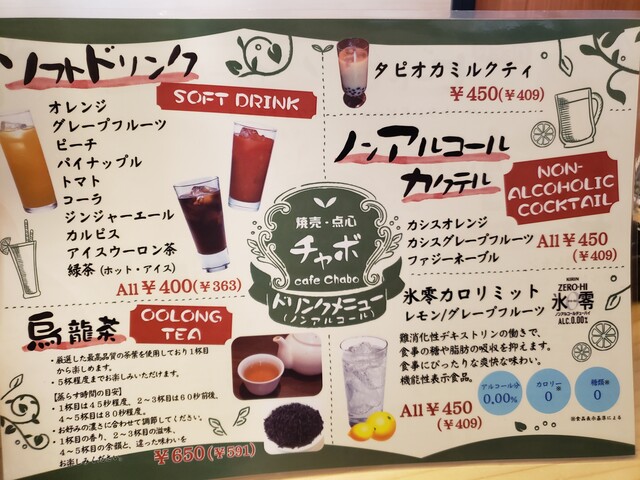 ソフトドリンク
SOFT DRINK
オレンジ
グレープフルーツ
ピーチ
パイナップル
トマト
コーラ
ジンジャーエール
カルピス
アイスウーロン茶
緑茶 (ホット・アイス)
All ¥400(¥363)
烏龍茶
OOLONG
TEA
・厳選した最高品質の茶葉を使用しており1杯目
から楽しめます。
・5杯程度までお楽しみいただけます。
【蒸らす時間の目安】
・1杯目は45秒程度、2～3杯目は60秒前後、
4～5杯目は80秒程度。
・お好みの濃さに合わせて調節してください。
・1杯目の香り、2～3杯目の滋味、
4～5杯目の余韻と、違った味わいを
お楽しみください。
¥650(¥591)
焼売・点心
チャボ
cafe Chabo
ドリンクメニュー
(ノンアルコール)
タピオカミルクティ
¥450(¥409)
ノンアルコール
カクテル
NON-
ALCOHOLIC
COCKTAIL
カシスオレンジ
カシスグレープフルーツ
ファジーネーブル
All ¥450
(¥409)
氷零カロリミット
レモン/グレープフルーツ
KIRIN
ZERO-HI
氷零
ノンアルコールチューハイ
ALC.0.00%
難消化性デキストリンの働きで、
食事の糖や脂肪の吸収を抑えます。
食事にぴったりな爽快な味わい。
機能性表示食品。
All ¥450
(¥409)
アルコール分
0.00%
カロリー※
0
糖類※
0
※食品表示基準による